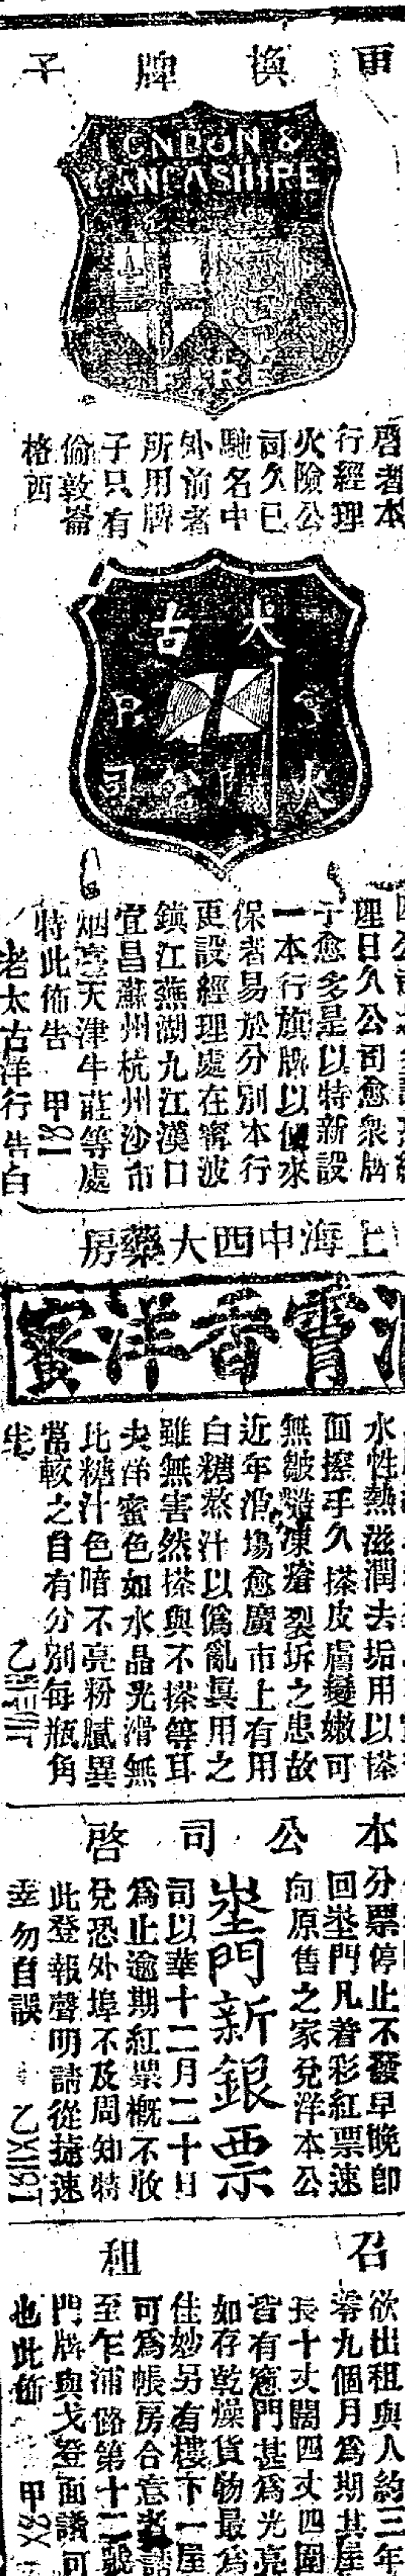 更換牌子
LONDON &
LANCASHIRE
FIRE
啓者本
行經理
火險公
司久已
馳名中
外前者
所用牌
子只有
倫敦崙
格西
太古
火
公司
理日久公司愈衆牌
子愈多是以特新設
一本行旗牌以便來
保者易於分別本行
更設經理處在寗波
鎮江蕪湖九江漢口
宜昌蘇州杭州沙市
烟臺天津牛莊等處
特此佈告 甲
老太古洋行告白
上海中西大藥房
香洋蜜
水性熱滋潤去垢用以搽
面擦手久搽皮膚變嫩可
無皺凍瘡裂坼之患故
近年消塲愈廣市上有用
白糖熬汁以僞亂真用之
雖無害然搽與不搽等耳
夫洋蜜色如水晶光滑無
比糖汁色暗不亮粉膩異
常較之自有分別每瓶角
半 乙
本公司啓
分票停止不發早晚卽
回埊門凡着彩紅票速
向原售之家兌洋本公
埊門新銀票
司以華十二月二十日
爲止逾期紅票槪不收
兌恐外埠不及周知特
此登報聲明請從㨗速
幸勿自誤 乙
召租
欲出租與人約三年
零九個月爲期其屋
長十丈闊四丈四圍
皆有窻門甚爲光亮
如存乾燥貨物最爲
佳妙另有樓下一屋
可爲帳房合意者請
至乍浦路第十二號
門牌與戈登面議可
也此佈 甲